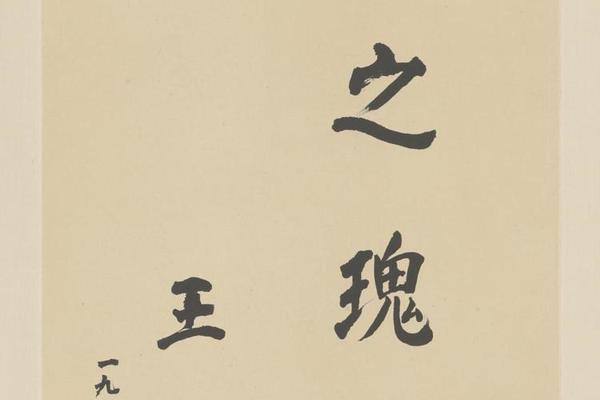 之瑰
王
一九